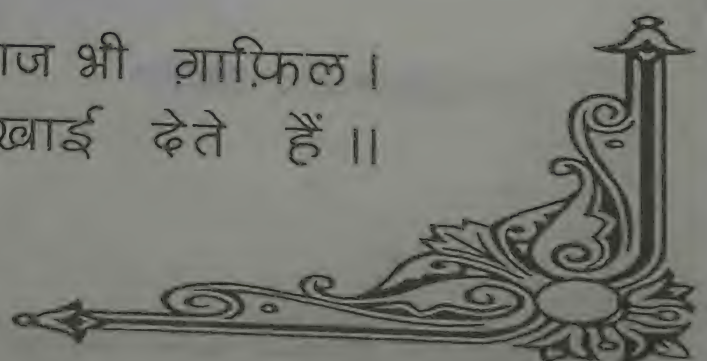 ाज भी ग़ाफ़िल ।
खाई देते हैं ॥